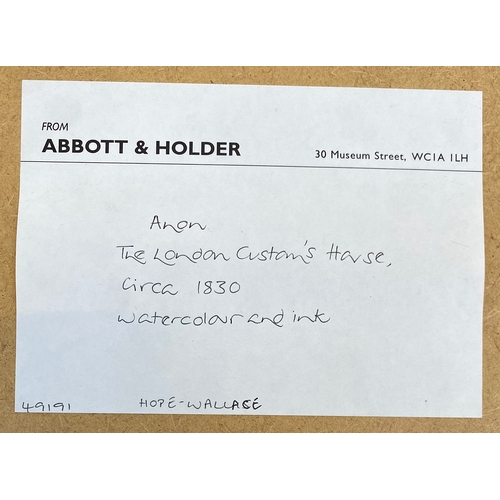 FROM
ABBOTT & HOLDER 30 Museum Street, WC1A 1LH
Anon
The London Custom's House,
circa 1830
watercolour and ink
49191 HOPE-WALLACE